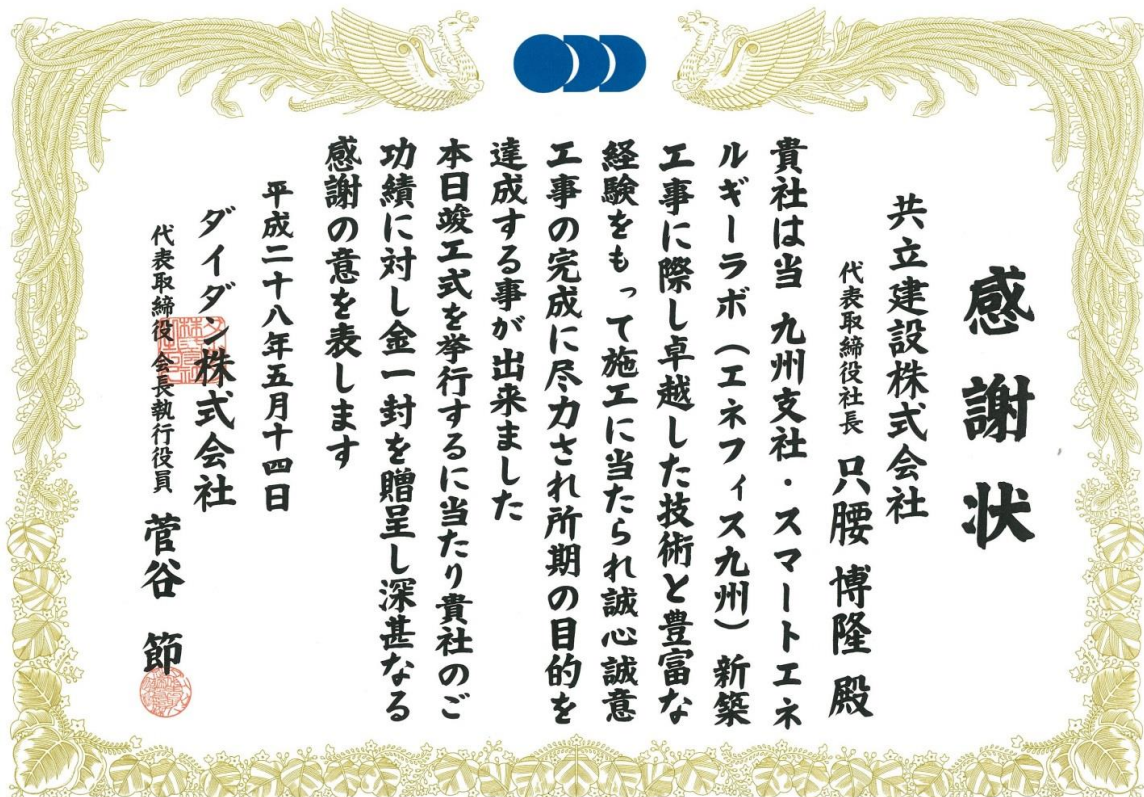 感謝状
共立建設株式会社
代表取締役社長 只腰 博隆 殿
貴社は当 九州支社・スマートエネ
ルギーラボ(エネフィス九州)新築
工事に際し卓越した技術と豊富な
経験をもって施工に当たられ誠心誠意
工事の完成に尽力され所期の目的を
達成する事が出来ました
本日竣工式を挙行するに当たり貴社のご
功績に対し金一封を贈呈し深甚なる
感謝の意を表します
平成二十八年五月十四日
ダイダン株式会社
代表取締役 会長執行役員 菅谷 節